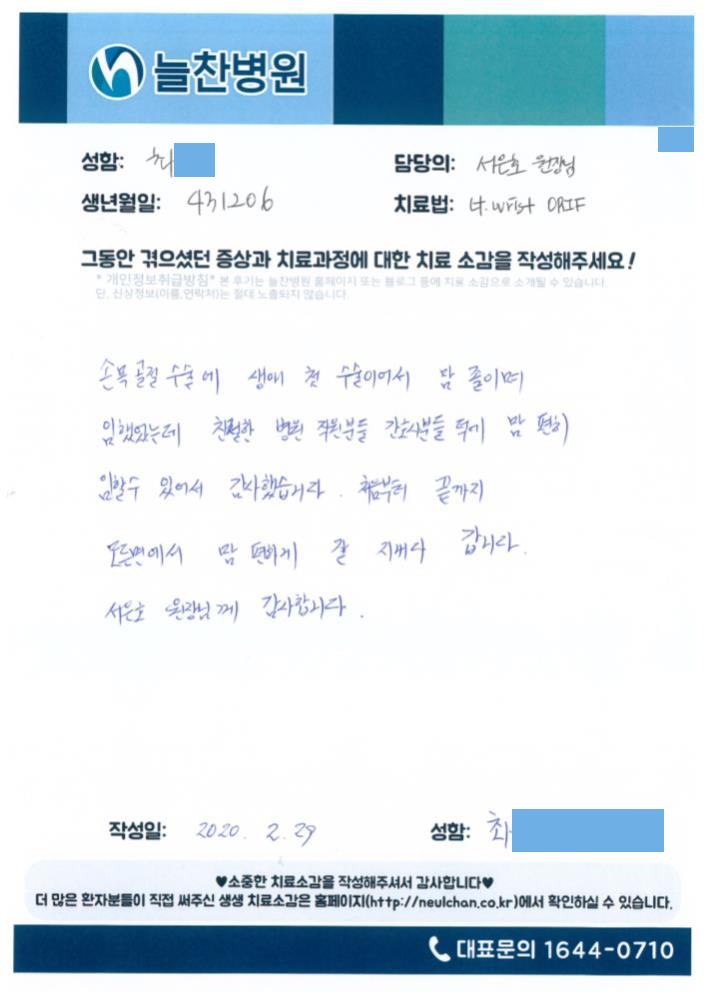 늘찬병원
성함: 최
담당의: 서은호 원장님
생년월일: 431206
치료법: Lt. wrist ORIF
그동안 겪으셨던 증상과 치료과정에 대한 치료 소감을 작성해주세요!
* 개인정보취급방침* 본 후기는 늘찬병원 홈페이지 또는 블로그 등에 치료 소감으로 소개될 수 있습니다.
단, 신상정보(이름,연락처)는 절대 노출되지 않습니다.
손목골절 수술에 생애 첫 수술이어서 맘 졸이며
임했었는데 친절한 병원 직원분들 간호사분들 덕에 맘 편히
임할수 있어서 감사했습니다. 처음부터 끝까지
모든면에서 맘 편하게 잘 지내다 갑니다.
서은호 원장님께 감사합니다.
작성일: 2020. 2. 29
성함: 최
♥소중한 치료소감을 작성해주셔서 감사합니다♥
더 많은 환자분들이 직접 써주신 생생 치료소감은 홈페이지(http://neulchan.co.kr)에서 확인하실 수 있습니다.
대표문의 1644-0710